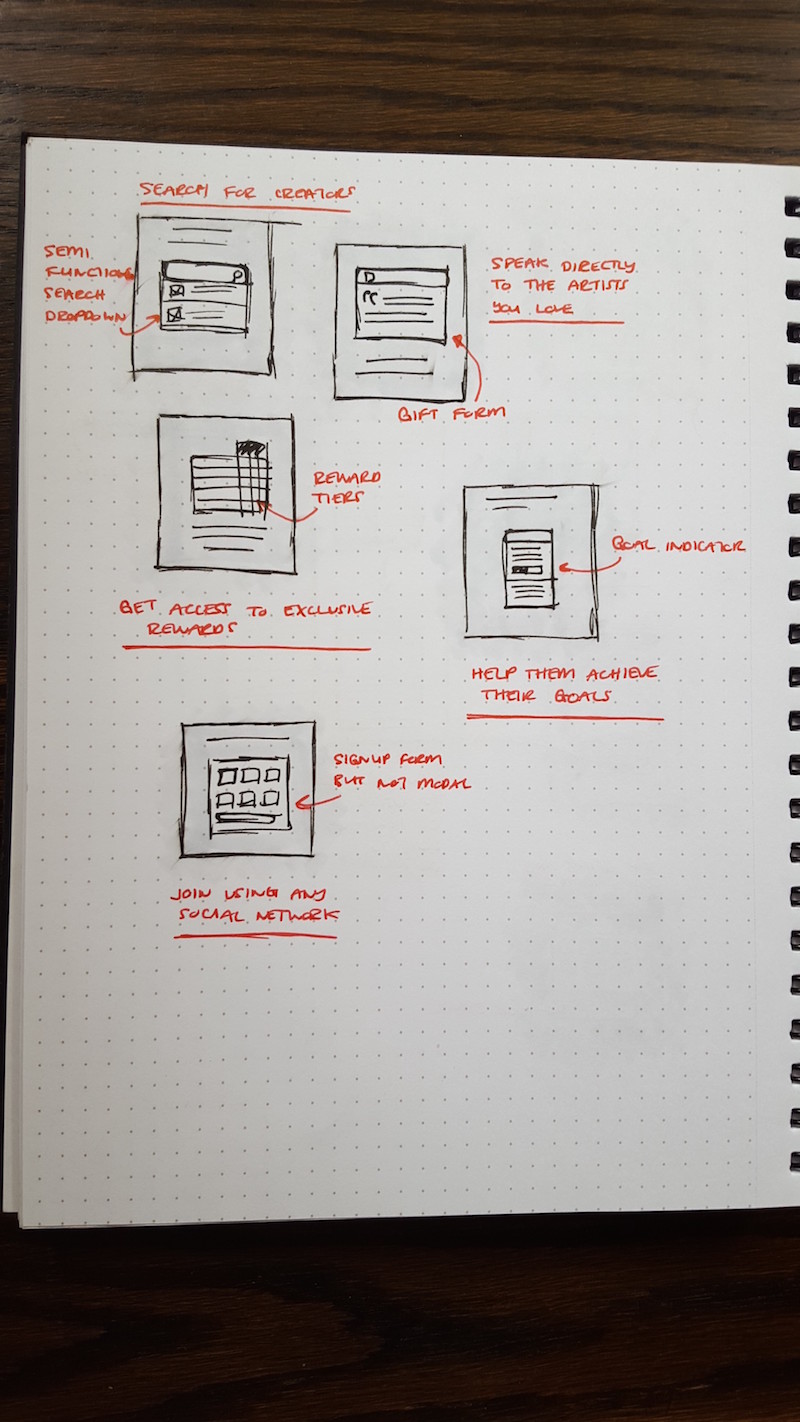 SEARCH FOR CREATORS
SEMI
FUNCTIONAL
SEARCH
DROPDOWN
SPEAK DIRECTLY
TO THE ARTISTS
YOU LOVE
GIFT FORM
REWARD
TIERS
GET ACCESS TO EXCLUSIVE
REWARDS
GOAL INDICATOR
HELP THEM ACHIEVE
THEIR GOALS
SIGNUP FORM
BUT NOT MODAL
JOIN USING ANY
SOCIAL NETWORK